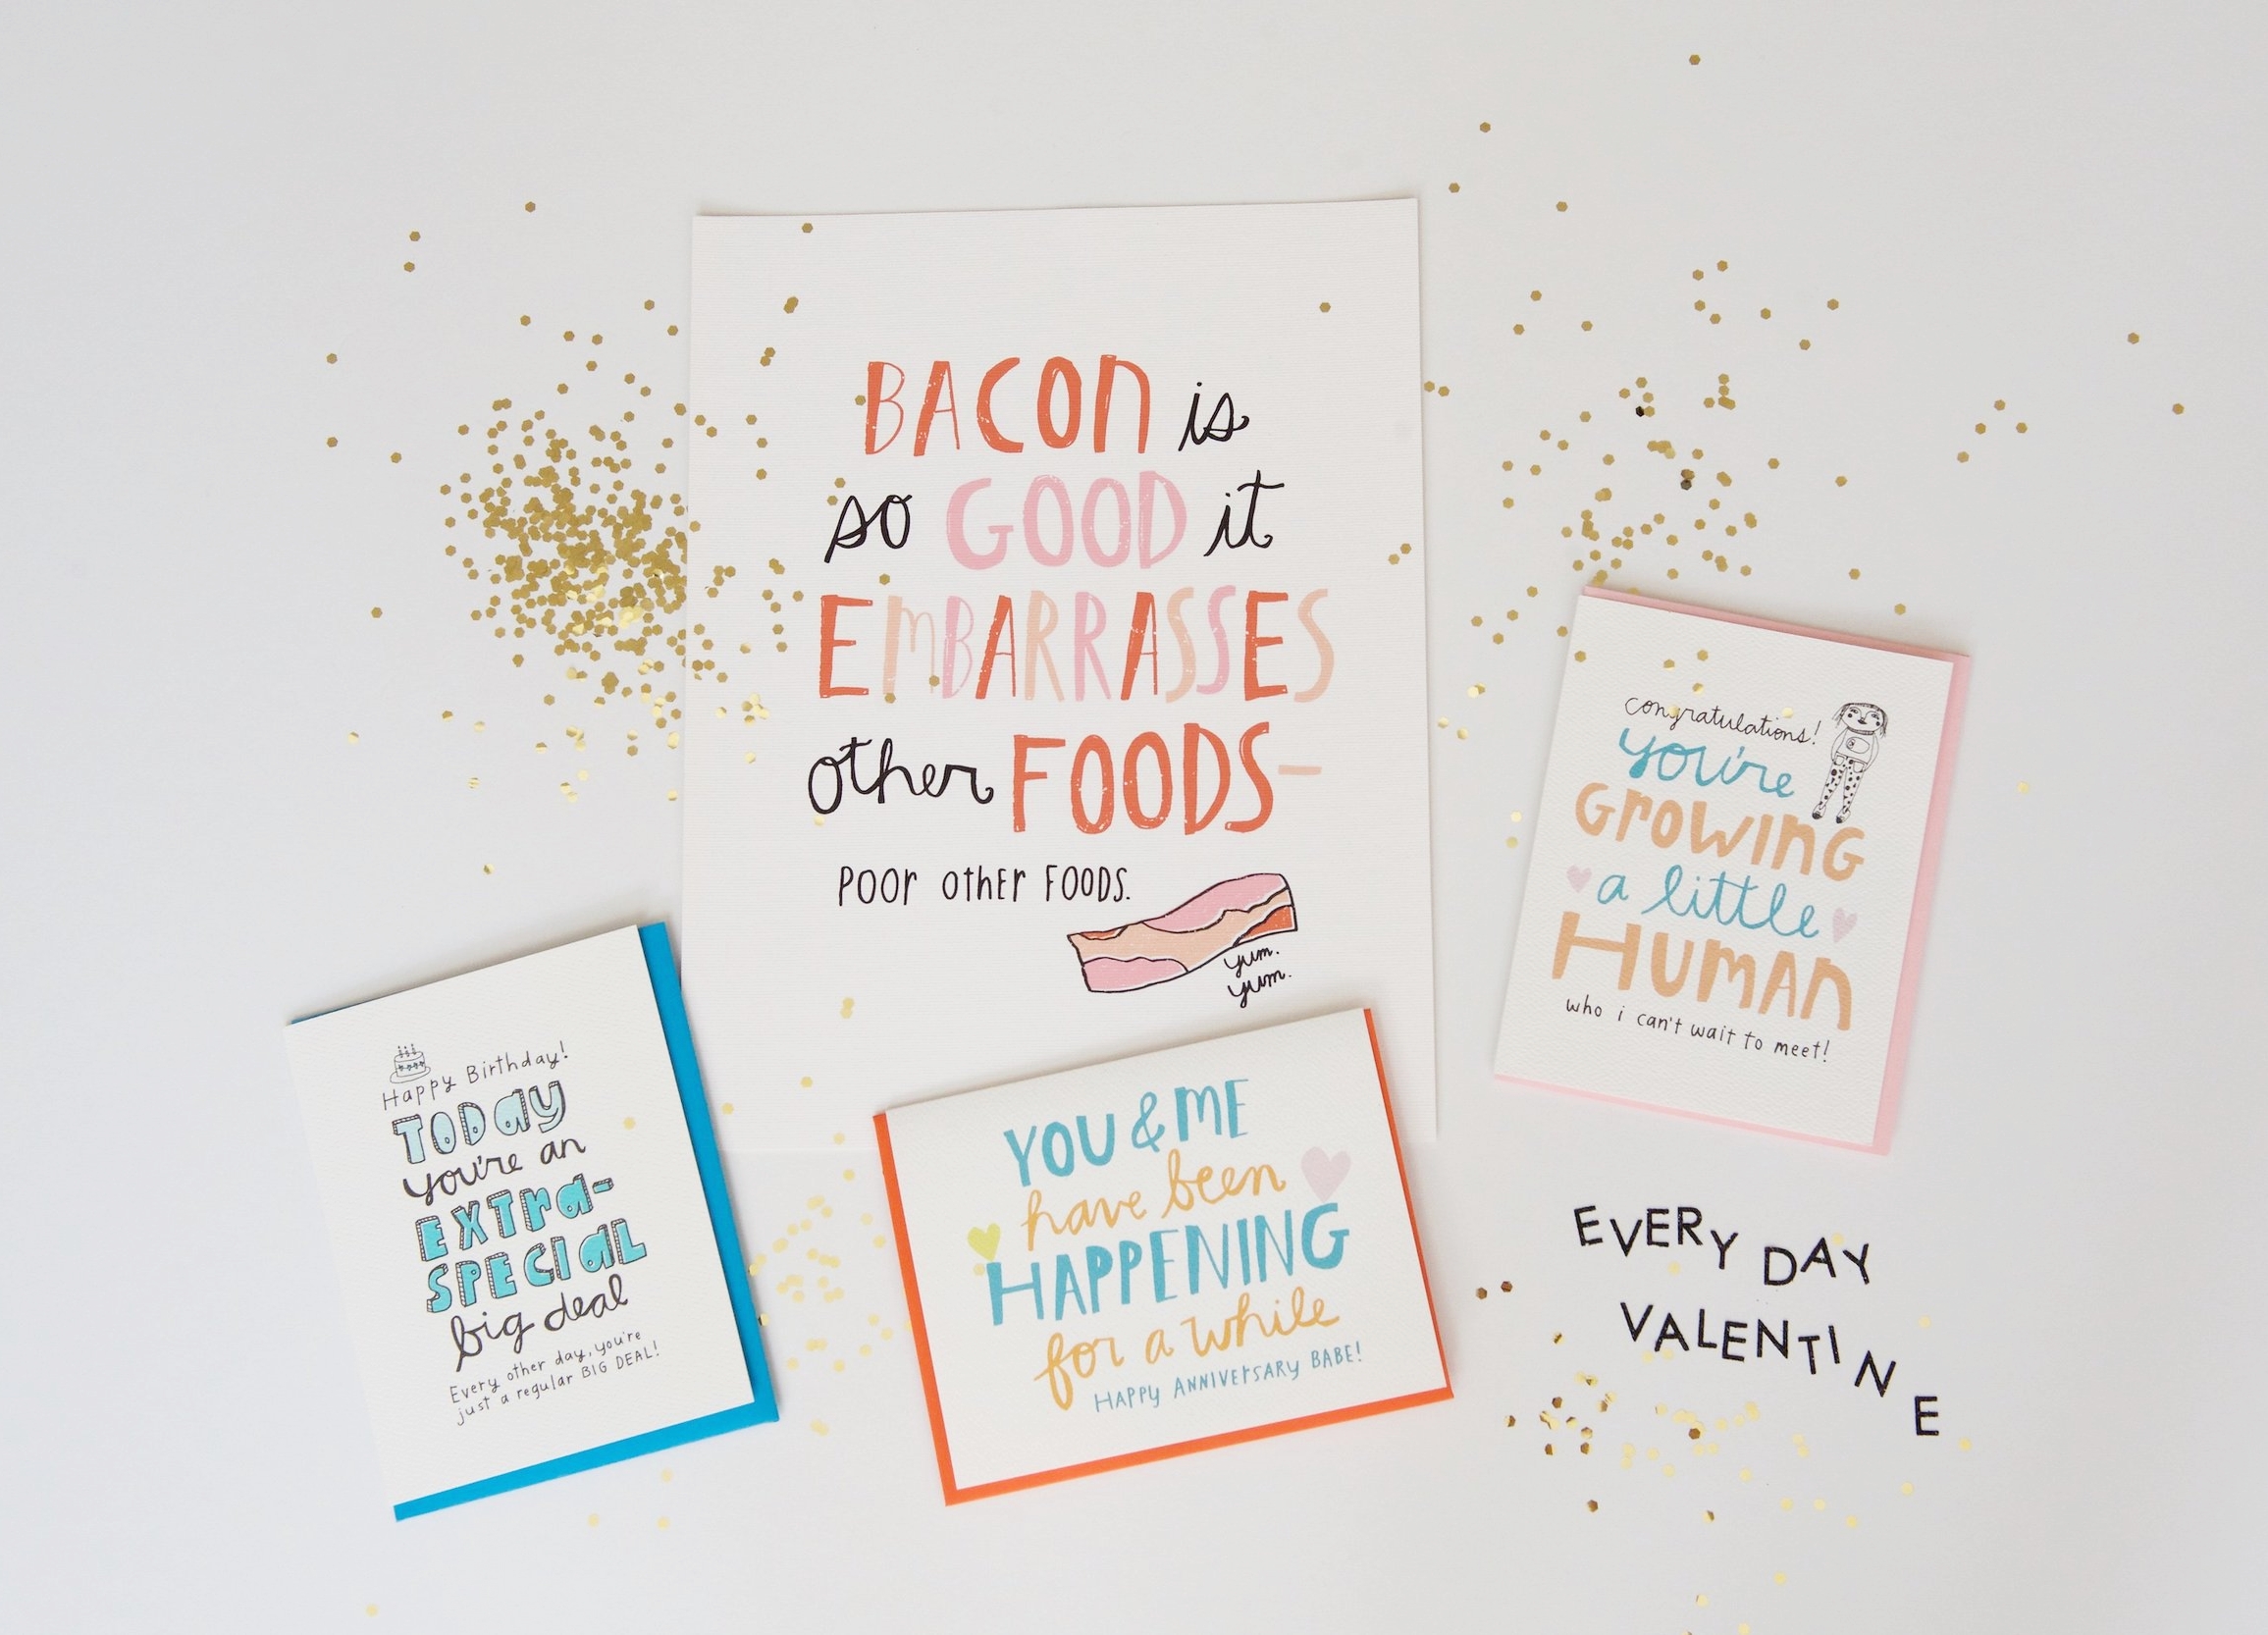 BACON is
so GOOD it
EMBARRASSES
other FOODS-
POOR OTHER FOODS.
yum.
yum.
congratulations!
you're
GROWING
a little
HUMAN
who i can't wait to meet!
Happy Birthday!
TODAY
you're an
EXTRA-
SPECIAL
big deal
Every other day, you're
just a regular BIG DEAL!
YOU & ME
have been
HAPPENING
for a while
HAPPY ANNIVERSARY BABE!
EVERY DAY
VALENTINE